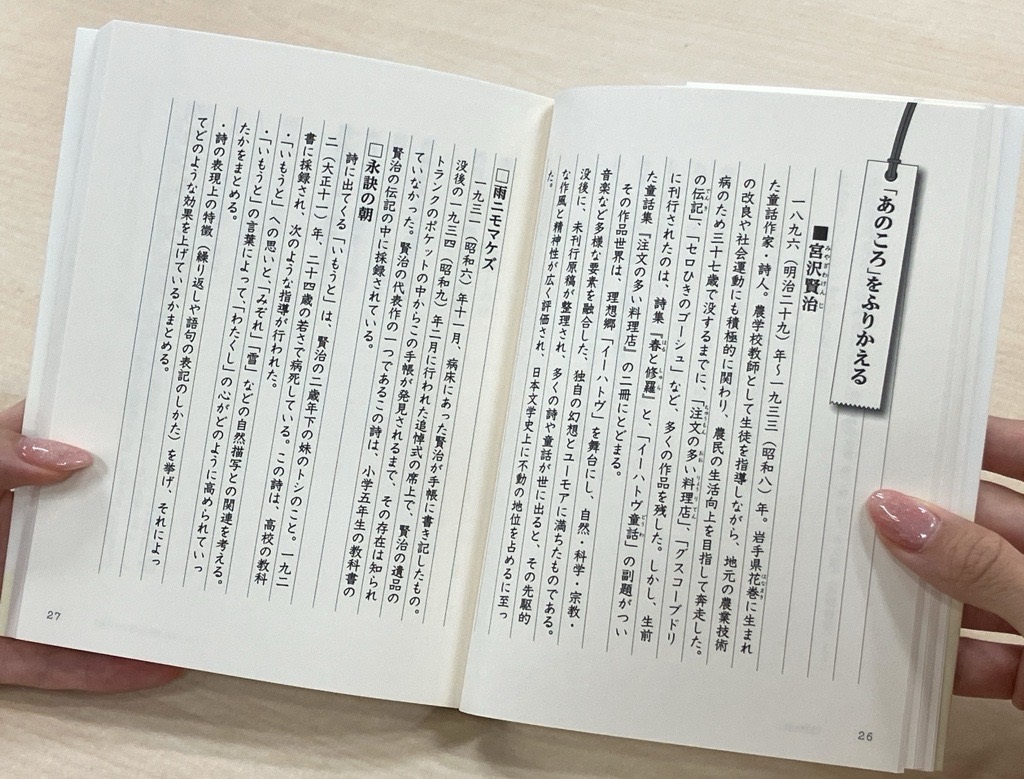 「あのころ」をふりかえる
■宮沢賢治
一八九六（明治二十九）年～一九三三（昭和八）年。岩手県花巻に生まれ
た童話作家・詩人。農学校教師として生徒を指導しながら、地元の農業技術
の改良や社会運動にも積極的に関わり、農民の生活向上を目指して奔走した。
病のため三十七歳で没するまでに、「注文の多い料理店」、「グスコーブドリ
の伝記」、「セロひきのゴーシュ」など、多くの作品を残した。しかし、生前
に刊行されたのは、詩集『春と修羅』と、「イーハトヴ童話」の副題がつい
た童話集『注文の多い料理店』の二冊にとどまる。
その作品世界は、理想郷「イーハトヴ」を舞台にし、自然・科学・宗教・
音楽など多様な要素を融合した、独自の幻想とユーモアに満ちたものである。
没後に、未刊行原稿が整理され、多くの詩や童話が世に出ると、その先駆的
な作風と精神性が広く評価され、日本文学史上に不動の地位を占めるに至っ
た。
26
□雨ニモマケズ
一九三一（昭和六）年十一月、病床にあった賢治が手帳に書き記したもの。
没後の一九三四（昭和九）年二月に行われた追悼式の席上で、賢治の遺品の
トランクのポケットの中からこの手帳が発見されるまで、その存在は知られ
ていなかった。賢治の代表作の一つであるこの詩は、小学五年生の教科書の
賢治の伝記の中に採録されている。
□永訣の朝
詩に出てくる「いもうと」は、賢治の二歳年下の妹のトシのこと。一九二
二（大正十一）年、二十四歳の若さで病死している。この詩は、高校の教科
書に採録され、次のような指導が行われた。
・「いもうと」への思いと、「みぞれ」「雪」などの自然描写との関連を考える。
・「いもうと」の言葉によって、「わたくし」の心がどのように高められていっ
たかをまとめる。
・詩の表現上の特徴（繰り返しや語句の表記のしかた）を挙げ、それによっ
てどのような効果を上げているかまとめる。
27